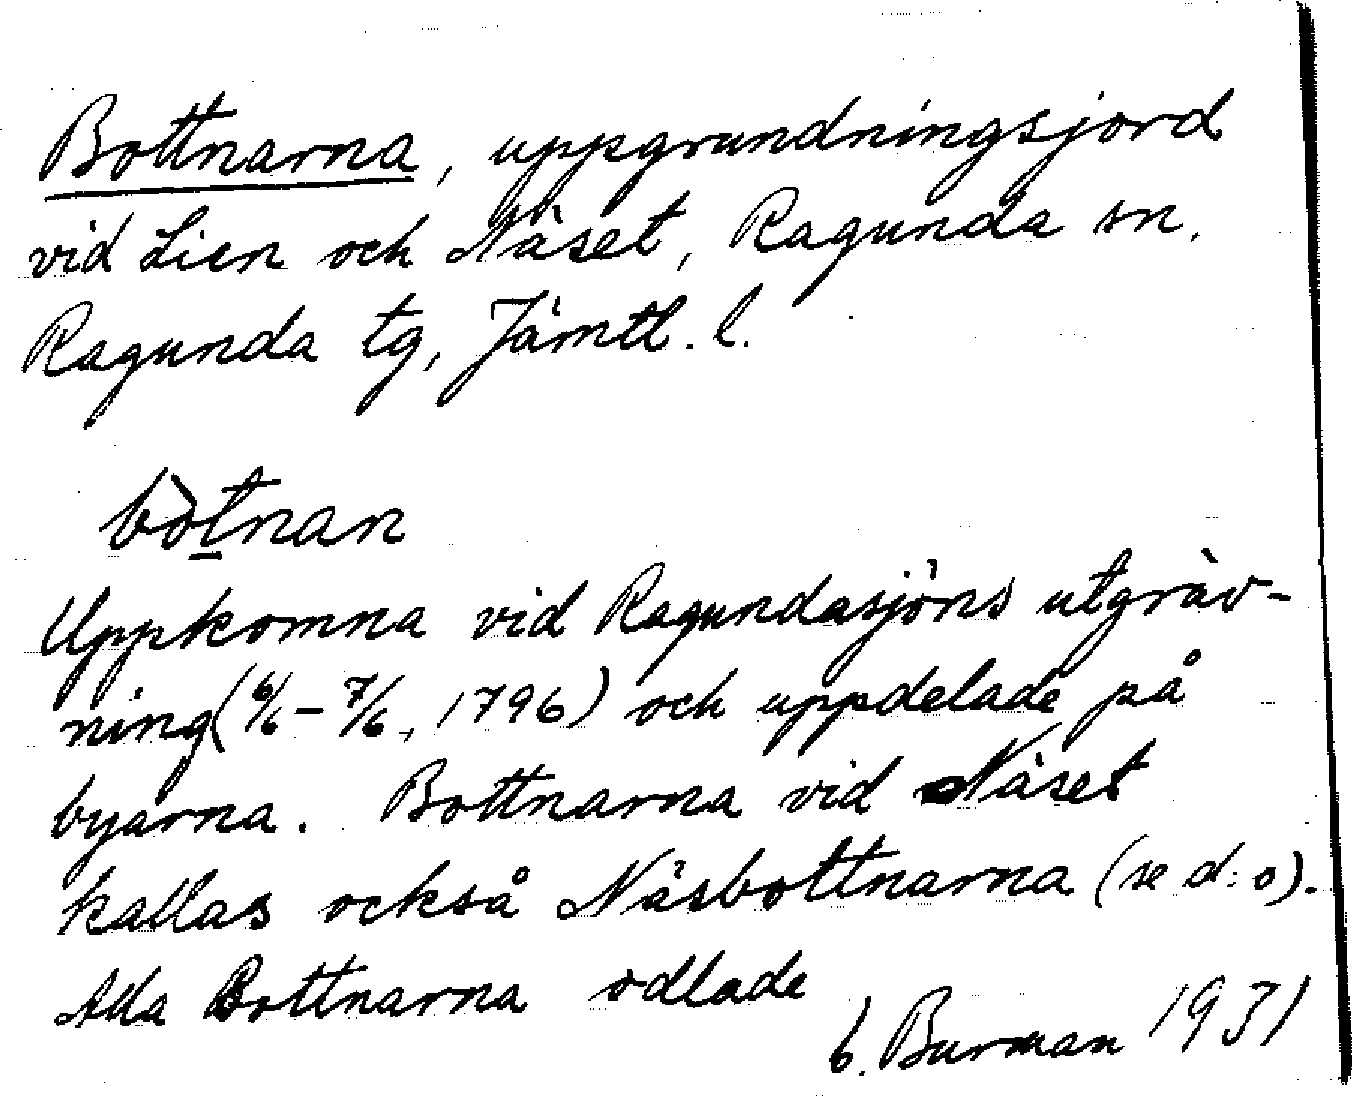 Bottnarna, uppgrundningsjord
vid Lien och Näset, Ragunda sn,
Ragunda tg, Jämtl. l.
bòtnan
Uppkomna vid Ragundasjöns utgräv-
ning (6/6 – 7/6, 1796) och uppdelade på
byarna. Bottnarna vid Näset
kallas också Näsbottnarna (se d:o).
Alla Bottnarna odlade
b. Burman 1931